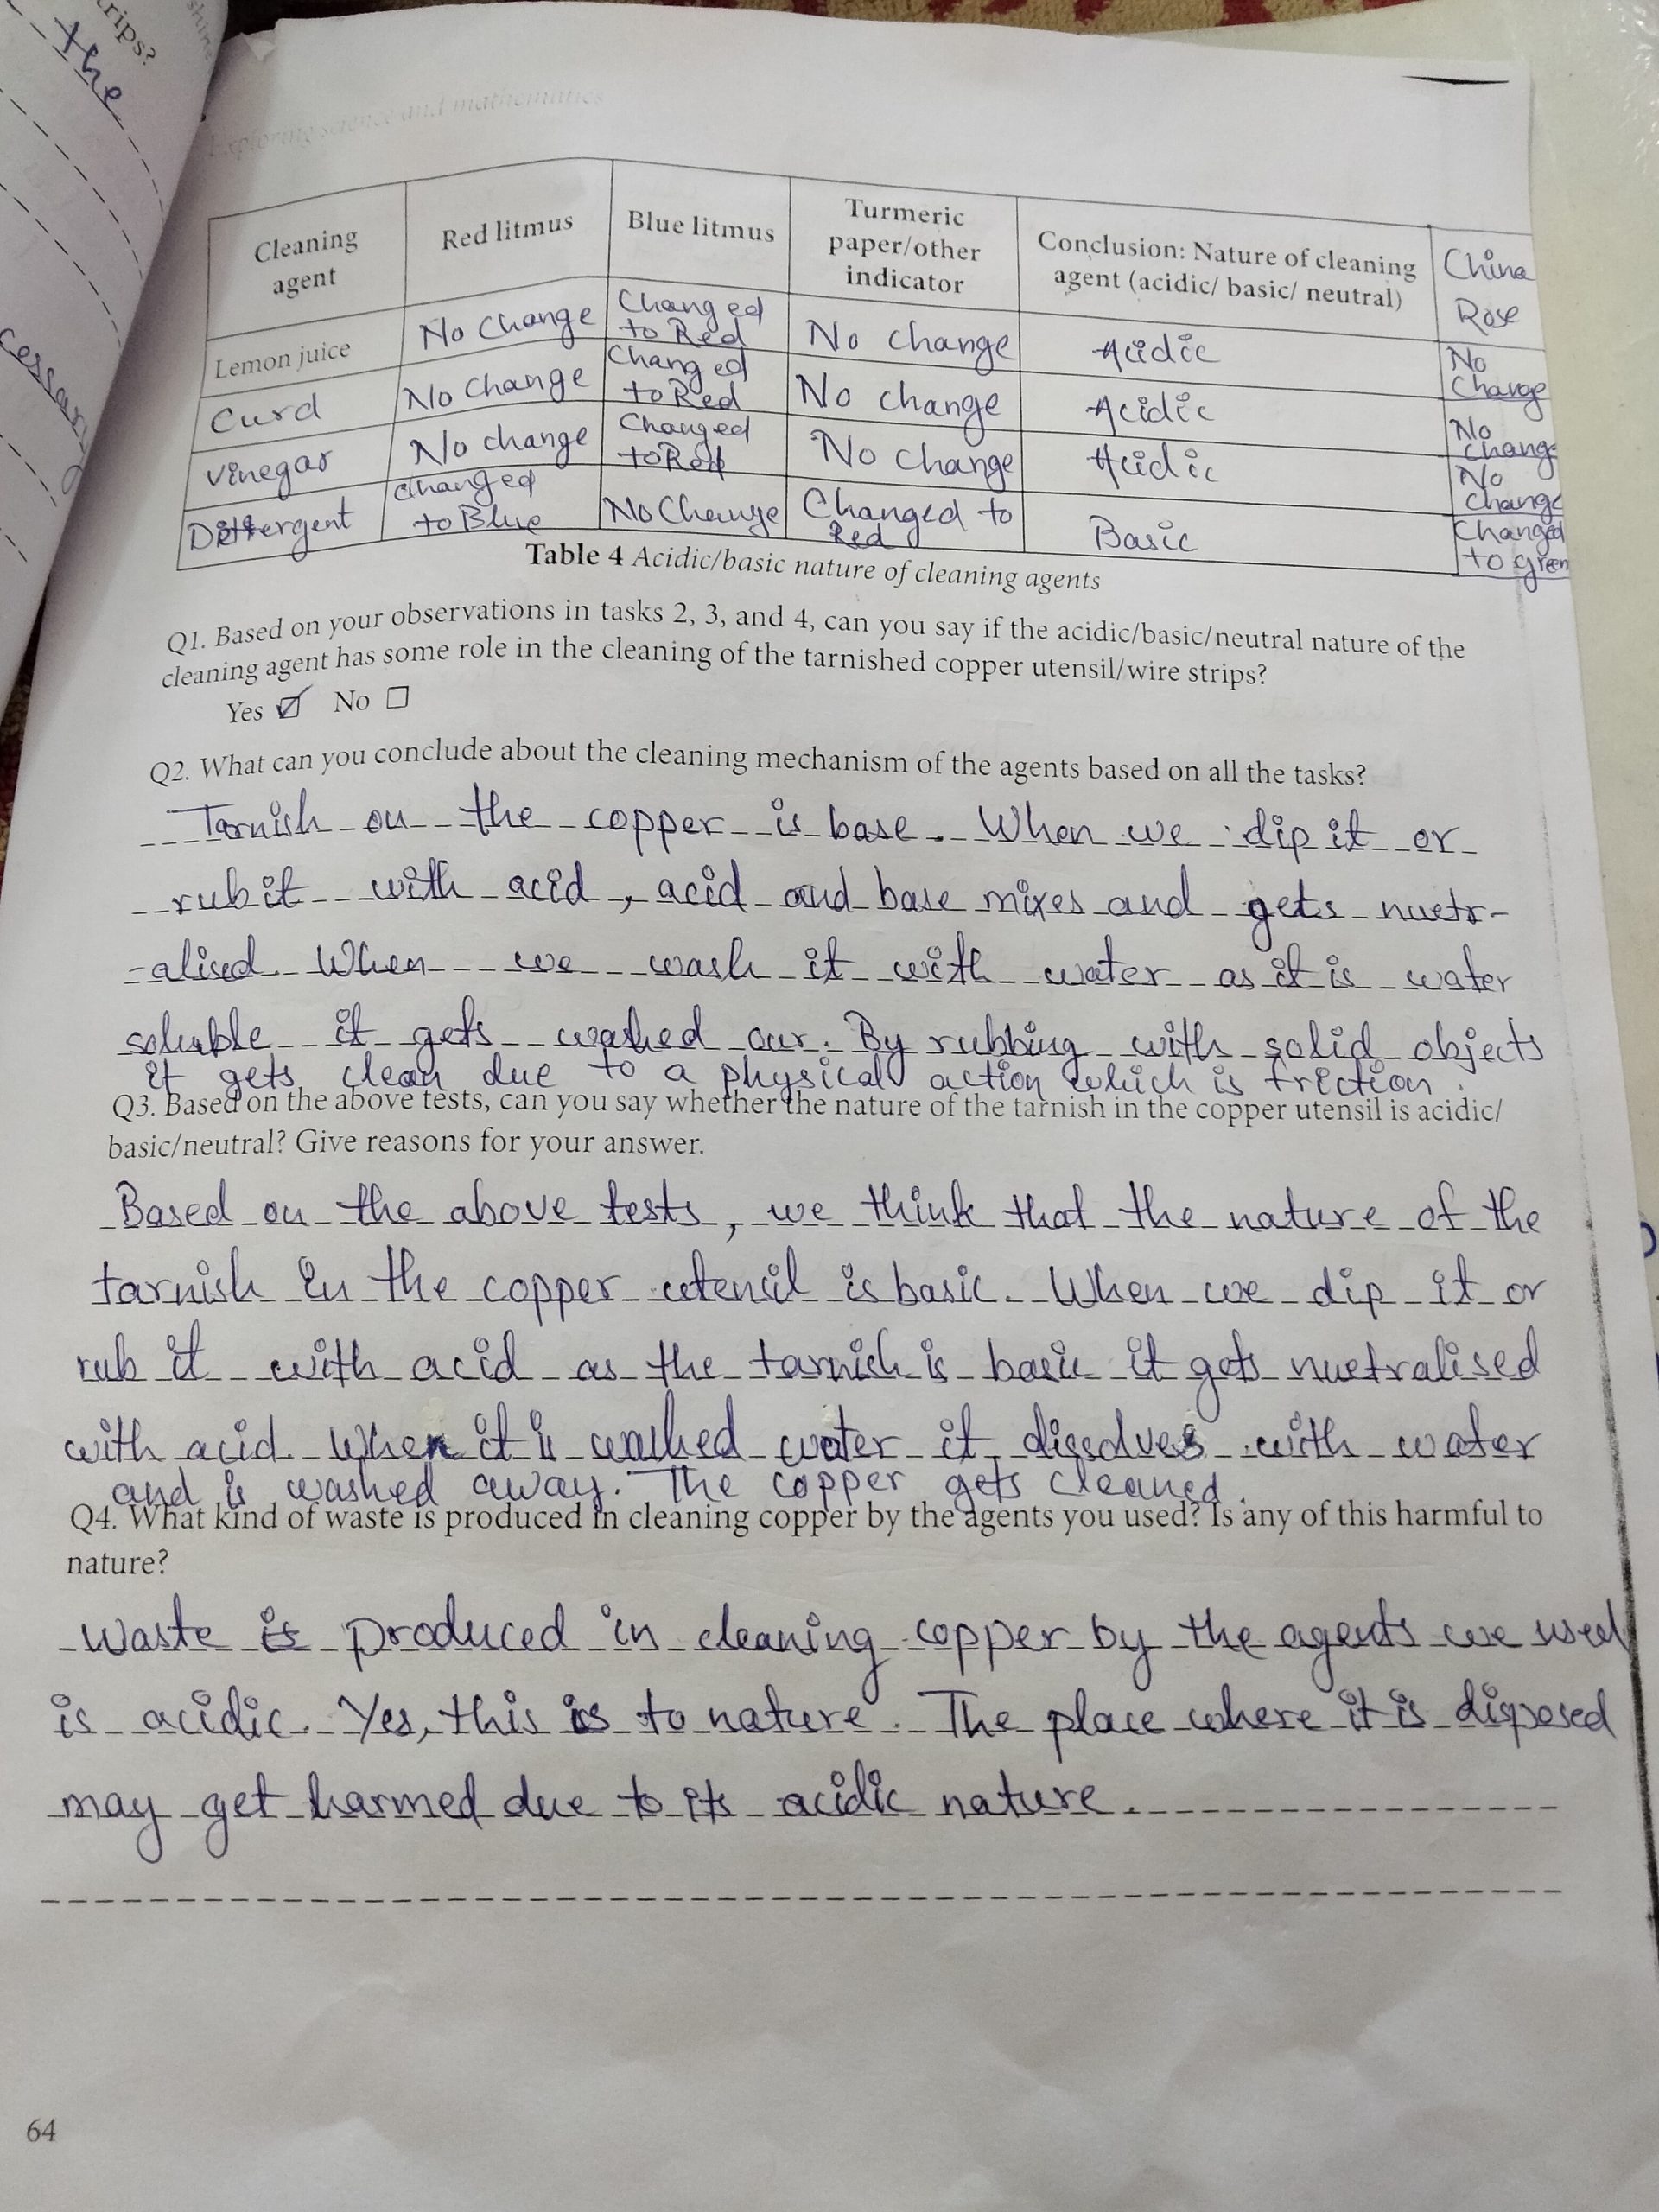 rips?
the
cessary
Exploring science and mathematics
Cleaning agent | Red litmus | Blue litmus | Turmeric paper/other indicator | Conclusion: Nature of cleaning agent (acidic/ basic/ neutral) | China Rose
Lemon juice | No Change | Changed to Red | No change | Acidic | No Change
Curd | No Change | Changed to Red | No change | Acidic | No Change
Vinegar | No change | Changed to Red | No Change | Acidic | No Change
Detergent | Changed to Blue | No Change | Changed to Red | Basic | Changed to green
Table 4 Acidic/basic nature of cleaning agents
Q1. Based on your observations in tasks 2, 3, and 4, can you say if the acidic/basic/neutral nature of the
cleaning agent has some role in the cleaning of the tarnished copper utensil/wire strips?
Yes ☑ No ☐
Q2. What can you conclude about the cleaning mechanism of the agents based on all the tasks?
Tarnish on the copper is base. When we dip it or
rub it with acid, acid and base mixes and gets nuetr-
-alised. When we wash it with water as it is water
soluble it gets washed our. By rubbing with solid objects
it gets clean due to a physical action which is friction.
Q3. Based on the above tests, can you say whether the nature of the tarnish in the copper utensil is acidic/
basic/neutral? Give reasons for your answer.
Based on the above tests, we think that the nature of the
tarnish in the copper utencil is basic. When we dip it or
rub it with acid as the tarnish is basic it gets nuetralised
with acid. When it is washed water it dissolves with water
and is washed away. The copper gets cleaned.
Q4. What kind of waste is produced in cleaning copper by the agents you used? Is any of this harmful to
nature?
Waste is produced in cleaning copper by the agents we used
is acidic. Yes, this is to nature. The place where it is disposed
may get harmed due to its acidic nature.
64